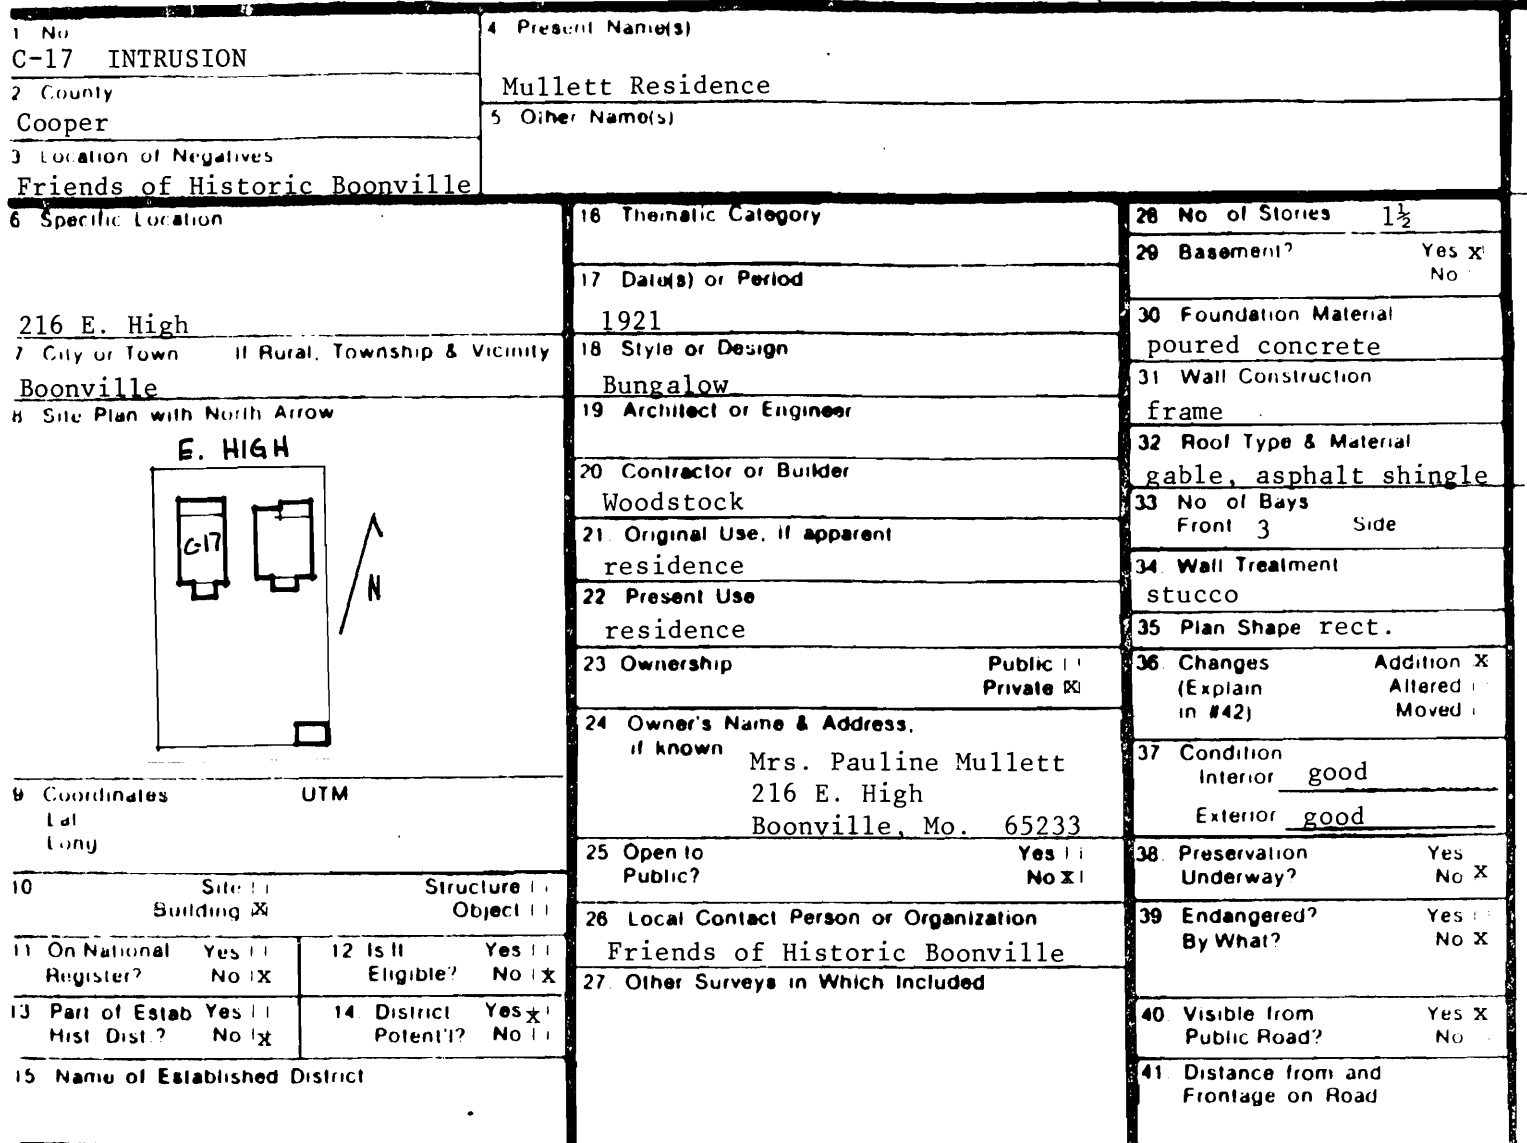 1 No
C-17 INTRUSION
2 County
Cooper
3 Location of Negatives
Friends of Historic Boonville
4 Present Name(s)
Mullett Residence
5 Other Name(s)
6 Specific Location
216 E. High
7 City or Town If Rural, Township & Vicinity
Boonville
8 Site Plan with North Arrow
E. HIGH
C-17
N
9 Coordinates UTM
Lat
Long
10 Site Structure
Building X Object
11 On National Yes
Register? No X
12 Is It Yes
Eligible? No X
13 Part of Estab Yes
Hist Dist.? No X
14 District Yes X
Potent'l? No
15 Name of Established District
16 Thematic Category
17 Date(s) or Period
1921
18 Style or Design
Bungalow
19 Architect or Engineer
20 Contractor or Builder
Woodstock
21. Original Use, if apparent
residence
22 Present Use
residence
23 Ownership Public
Private X
24 Owner's Name & Address,
if known
Mrs. Pauline Mullett
216 E. High
Boonville, Mo. 65233
25 Open to Yes
Public? No X
26 Local Contact Person or Organization
Friends of Historic Boonville
27. Other Surveys in Which Included
28 No of Stories 1½
29 Basement? Yes X
No
30 Foundation Material
poured concrete
31 Wall Construction
frame
32 Roof Type & Material
gable, asphalt shingle
33 No of Bays
Front 3 Side
34. Wall Treatment
stucco
35 Plan Shape rect.
36. Changes Addition X
(Explain Altered
in #42) Moved
37 Condition
Interior good
Exterior good
38. Preservation Yes
Underway? No X
39 Endangered? Yes
By What? No X
40. Visible from Yes X
Public Road? No
41. Distance from and
Frontage on Road